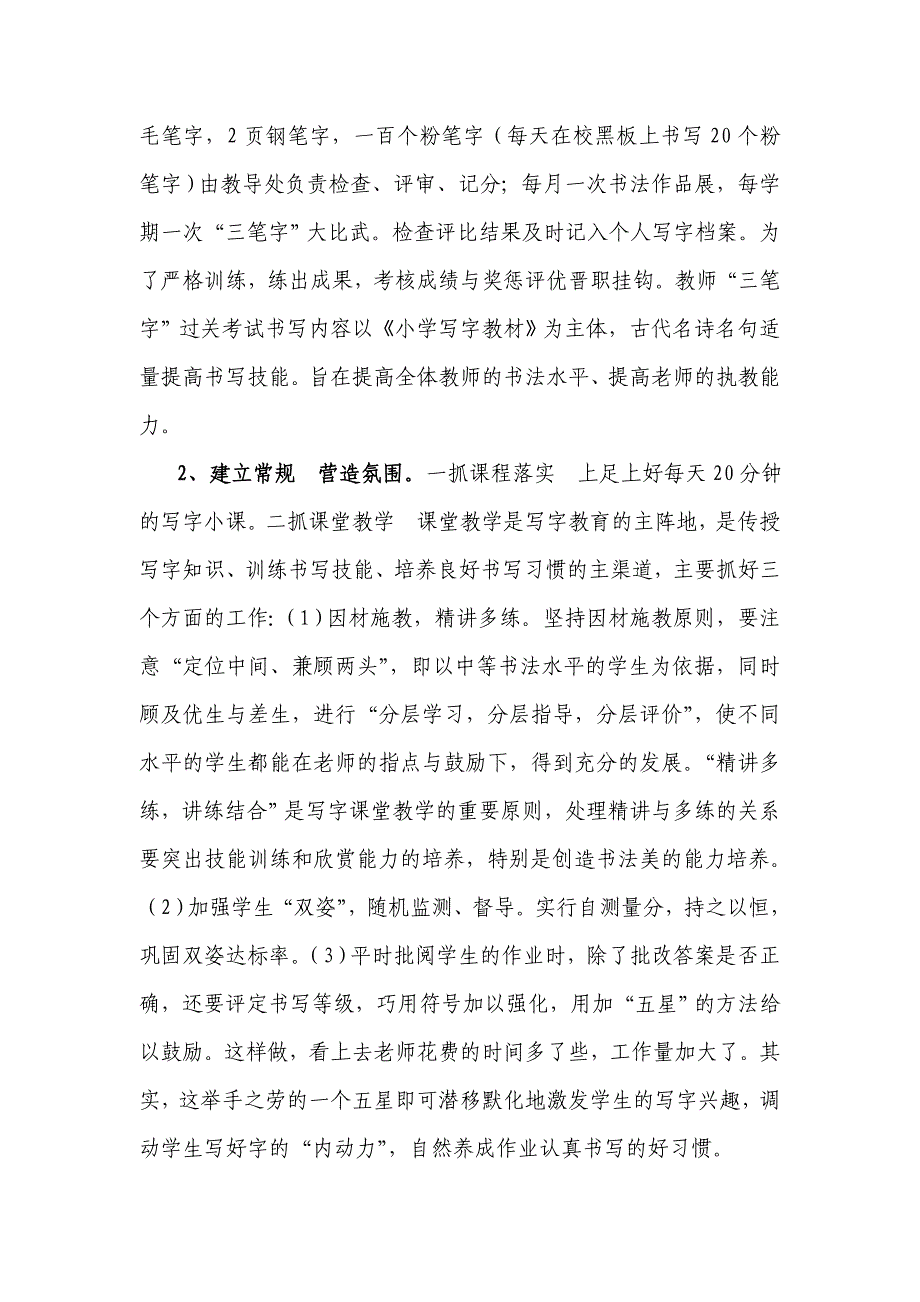 毛笔字，2 页钢笔字，一百个粉笔字（每天在校黑板上书写 20 个粉
笔字）由教导处负责检查、评审、记分；每月一次书法作品展，每学
期一次“三笔字”大比武。检查评比结果及时记入个人写字档案。为
了严格训练，练出成果，考核成绩与奖惩评优晋职挂钩。教师“三笔
字”过关考试书写内容以《小学写字教材》为主体，古代名诗名句适
量提高书写技能。旨在提高全体教师的书法水平、提高老师的执教能
力。
2、建立常规　营造氛围。一抓课程落实　上足上好每天 20 分钟
的写字小课。二抓课堂教学　课堂教学是写字教育的主阵地，是传授
写字知识、训练书写技能、培养良好书写习惯的主渠道，主要抓好三
个方面的工作：（1）因材施教，精讲多练。坚持因材施教原则，要注
意“定位中间、兼顾两头”，即以中等书法水平的学生为依据，同时
顾及优生与差生，进行“分层学习，分层指导，分层评价”，使不同
水平的学生都能在老师的指点与鼓励下，得到充分的发展。“精讲多
练，讲练结合”是写字课堂教学的重要原则，处理精讲与多练的关系
要突出技能训练和欣赏能力的培养，特别是创造书法美的能力培养。
（2）加强学生“双姿”，随机监测、督导。实行自测量分，持之以恒，
巩固双姿达标率。（3）平时批阅学生的作业时，除了批改答案是否正
确，还要评定书写等级，巧用符号加以强化，用加“五星”的方法给
以鼓励。这样做，看上去老师花费的时间多了些，工作量加大了。其
实，这举手之劳的一个五星即可潜移默化地激发学生的写字兴趣，调
动学生写好字的“内动力”，自然养成作业认真书写的好习惯。